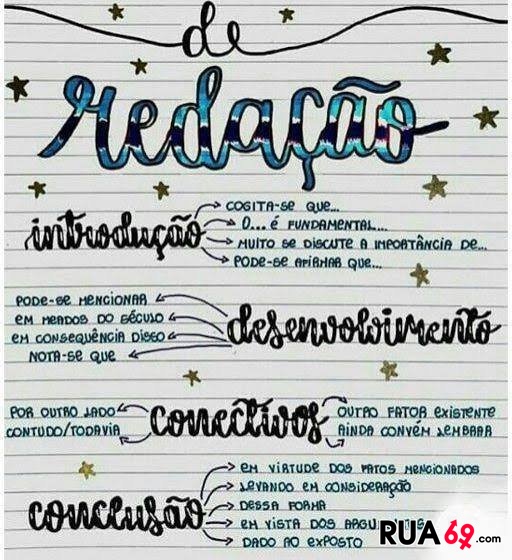 de
redação
introdução
COGITA-SE QUE...
O... É FUNDAMENTAL...
MUITO SE DISCUTE A IMPORTÂNCIA DE...
PODE-SE AFIRMAR QUE...
PODE-SE MENCIONAR
EM MEADOS DO SÉCULO
EM CONSEQUÊNCIA DISSO
NOTA-SE QUE
desenvolvimento
POR OUTRO LADO
CONTUDO/TODAVIA
conectivos
OUTRO FATOR EXISTENTE
AINDA CONVÉM LEMBRAR
conclusão
EM VIRTUDE DOS FATOS MENCIONADOS
LEVANDO EM CONSIDERAÇÃO
DESSA FORMA
EM VISTA DOS
DADO AO EXPOSTO
RUA69.com